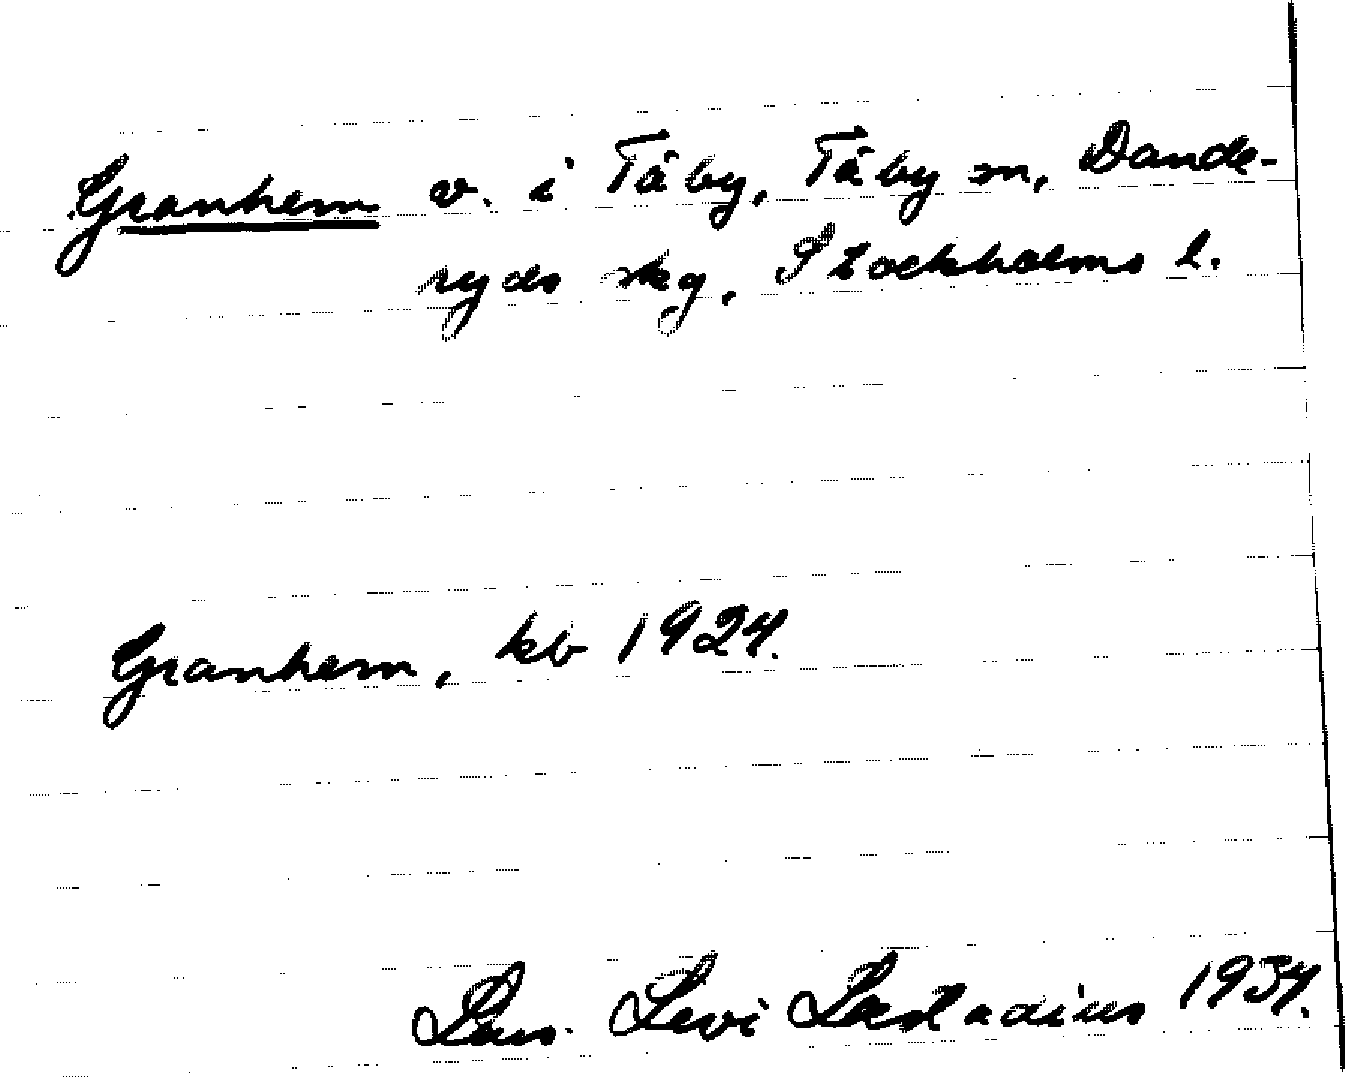 Granhem v. i Täby, Täby sn, Dande-
ryds skg, Stockholms l.
Granhem, kb 1924.
Lars Levi Læstadius 1934.